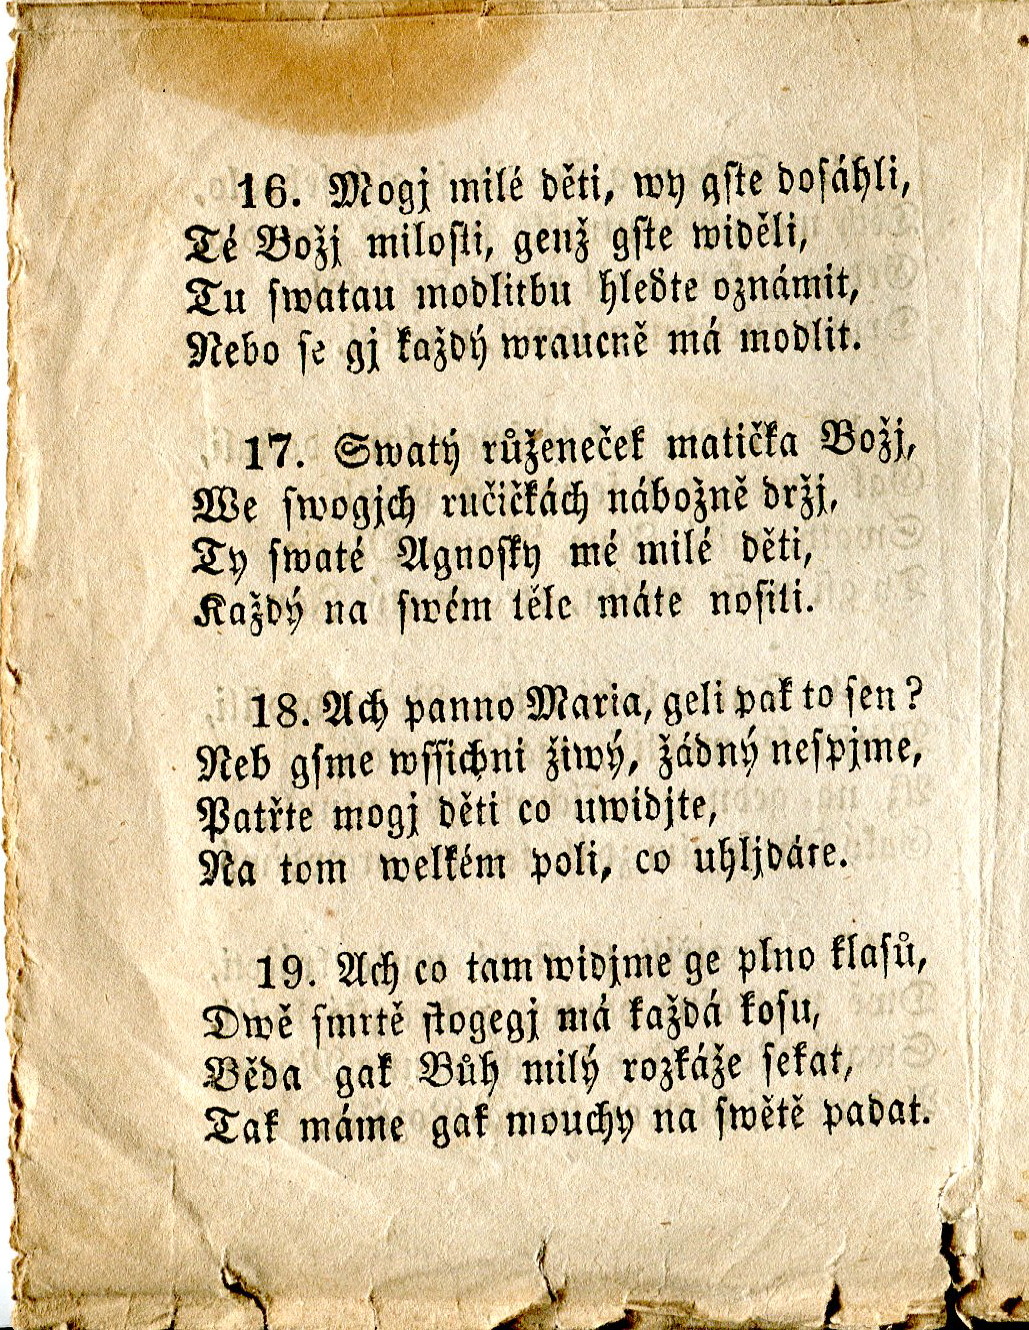 16. Mogj milé děti, wy gste dosáhli,
Té Božj milosti, genž gste widěli,
Tu swatau modlitbu hleďte oznámit,
Nebo se gj každý wraucně má modlit.
17. Swatý růženeček matička Božj,
We swogjch ručičkách nábožně držj,
Ty swaté Agnosky mé milé děti,
Každý na swém těle máte nositi.
18. Ach panno Maria, geli pak to sen?
Neb gsme wssichni žiwý, žádný nespjme,
Patřte mogj děti co uwidjte,
Na tom welkém poli, co uhljdáte.
19. Ach co tam widjme ge plno klasů,
Dwě smrtě stogegj má každá kosu,
Běda gak Bůh milý rozkáže sekat,
Tak máme gak mouchy na swětě padat.